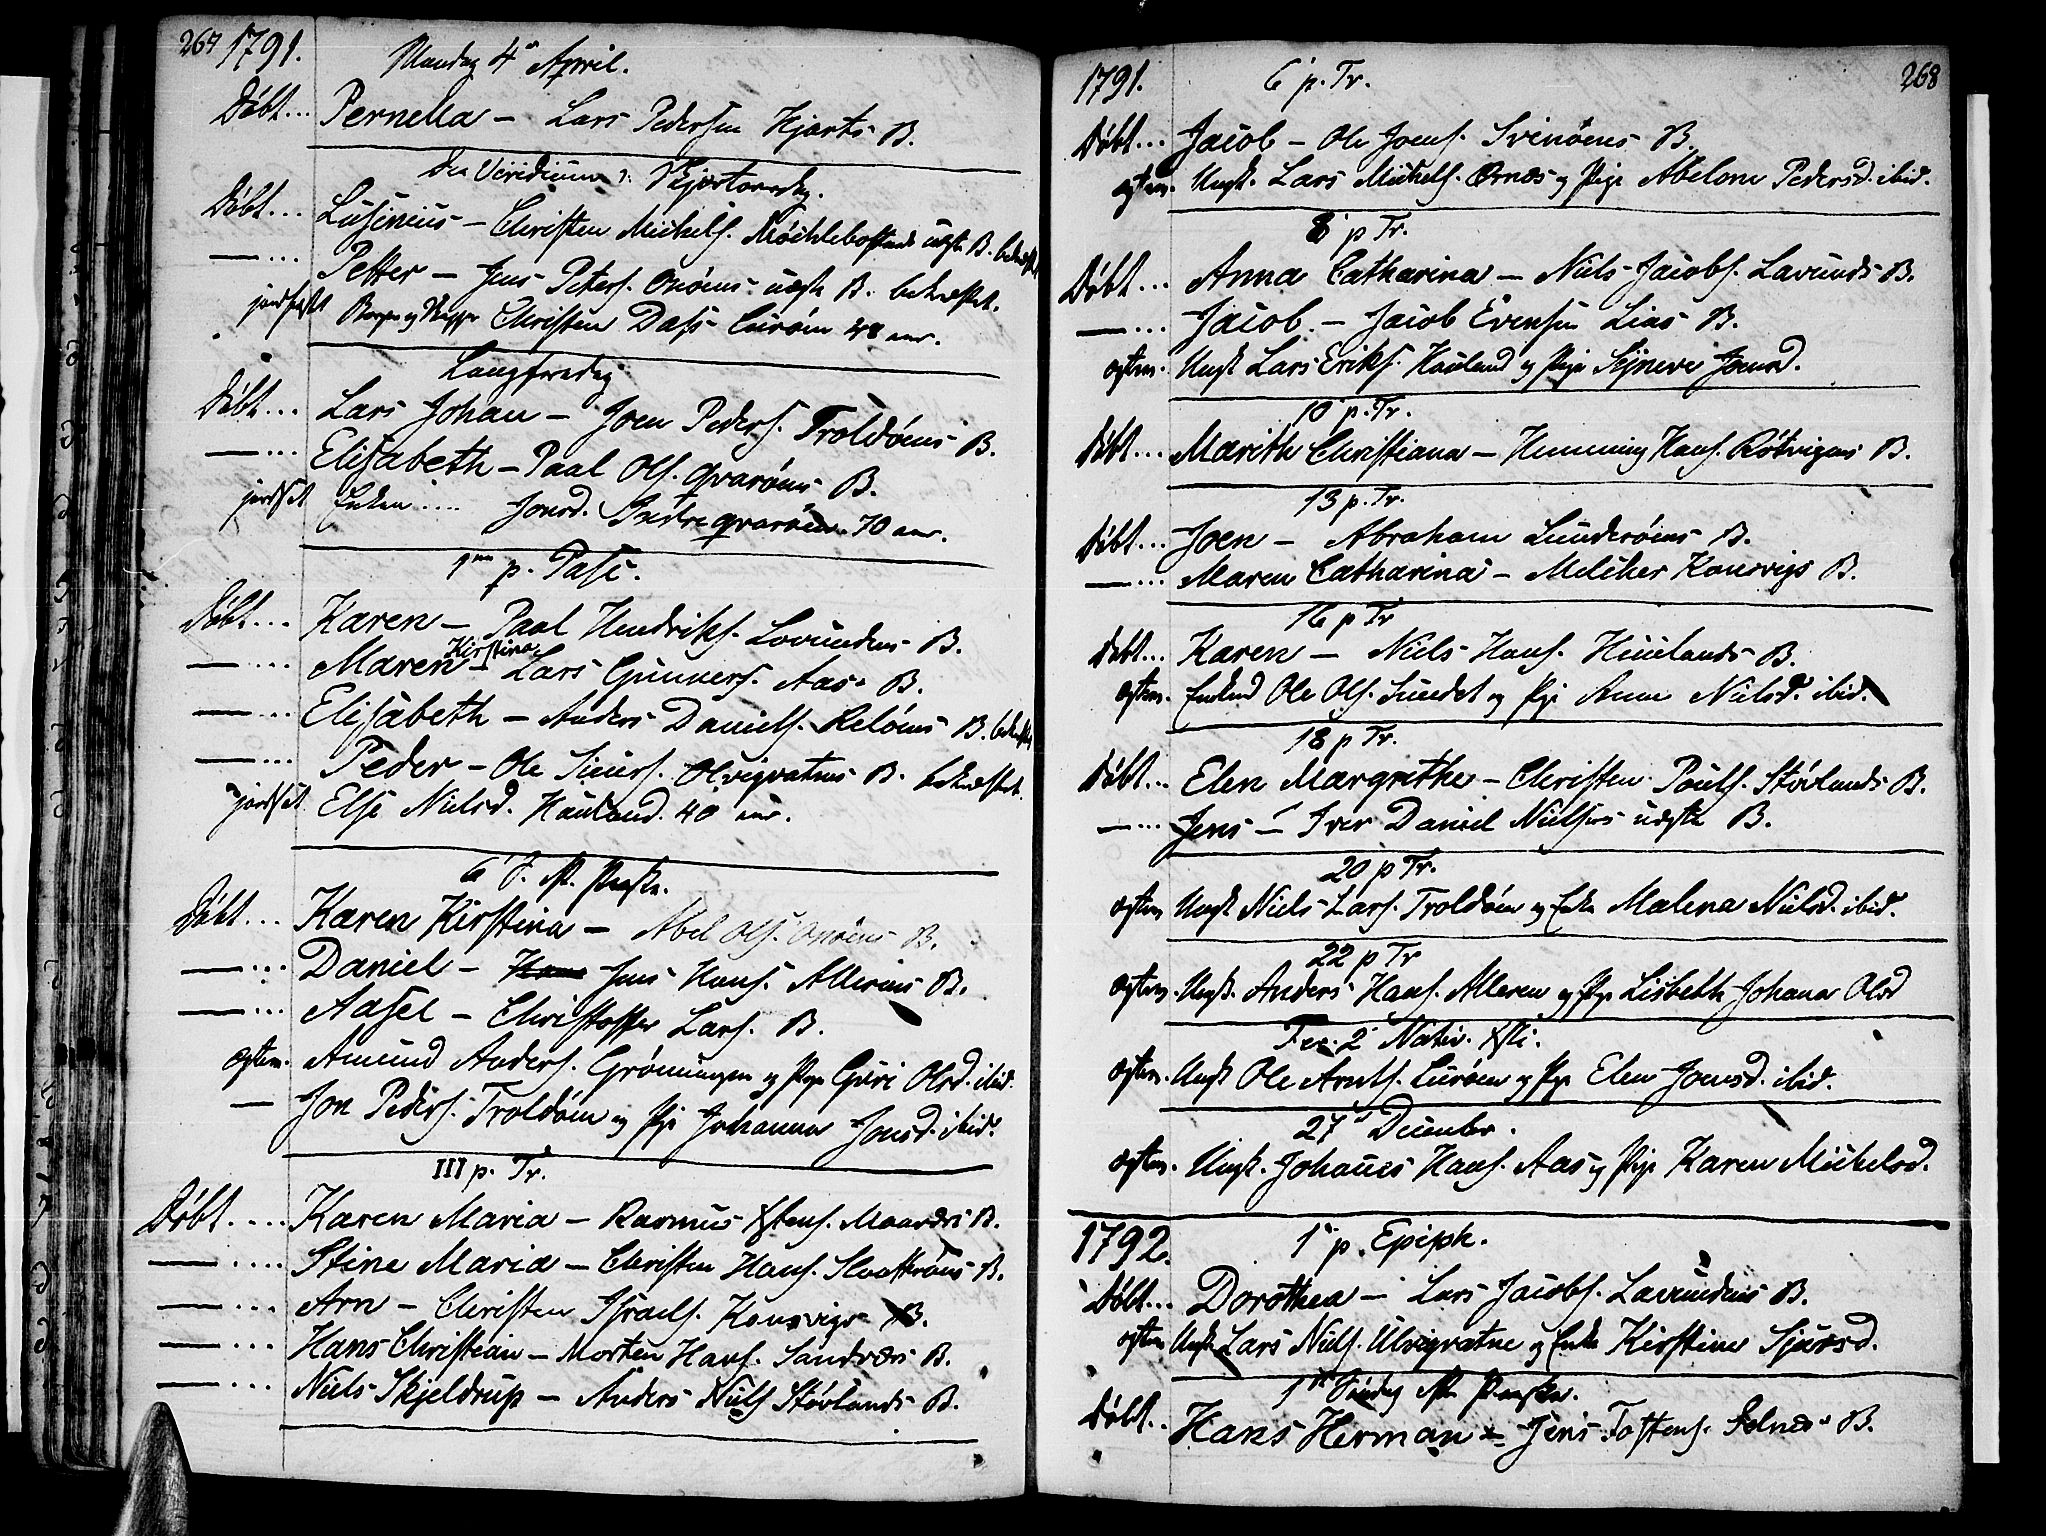 267 1791.
Mandag 4de April.
Döbt... Pernella — Lars Pedersen Hjarts B.
Dies Viridium ɔ: Skjertorsdag.
Döbt... Lusenius — Christen Michels. B.
—... Petter — Jens Peters. Onöens uægte B. bekræftet.
jordfæstet Christen Dass Luröen 48 aar.
Langfredag
Döbt... Lars Johan — Joen Peders. Troldöens B.
—... Elisabeth — Paal Ols. Qvaröens B.
jordfæst Enken .... Jonsd. Indre qvaröen 70 aar.
1ma p. Pasc.
Döbt... Karen — Paal Hendriks. Lovundens B.
—... Maren Kirstina — Lars Gunners. Aas B.
—... Elisabeth — Anders Daniels. Selöens B.
—... Peder — Ole Siurs. Olvigvatnes B. bekræftet.
jordfæst Else Nielsd. Hauland. 40 aar.
6 S. Paaske.
Döbt... Karen Kirstina — Abel Ols. Onöens B.
—... Daniel — Jens Hans. Allerens B.
—... Aasel — Christoffer Lars. B.
ægtev. Amund Anders. Gröningen og Pige Guri Olsd. ibid.
— Jon Peders. Troldöen og Pige Johanna Jonsd. ibid.
III p. Tr.
Döbt.... Karen Maria — Rasmus Xstens. B.
—.... Stine Maria — Christen Hans. B.
—... Arn — Christen Israels. Konsvigs B.
—... Hans Christian — Morten Hans. Sandværs B.
—... Niels Skjeldrup — Anders Niels Stövlands B.
1791. 6 p. Tr. 268
Döbt... Jacob — Ole Joens. Svinöens B.
ægtev. Ungk. Lars Michels. Ornæs og Pige Abelone Pedersd. ibid.
8 p Tr.
Döbt... Anna Catharina — Niels Jacobs. Lavunds B.
—... Jacob — Jacob Evensen Lias B.
ægtev. Ungk Lars Eriks. Hauland og Pige Synneve Joensd.
10 p. Tr.
Döbt... Marith Christiana — Hemming Hans. Rötvigens B.
13 p. Tr.
Döbt... Joen — Abraham Sunderöens B.
—... Maren Catharina — Melcher Konsvigs B.
16 p Tr
Döbt... Karen — Niels Hans. Huulands B.
ægtev. Enkmd Ole Ols. Sundet og Pige Anne Nielsd. ibid.
18 p Tr.
Döbt... Elen Margrethe — Christen Pouls. Stövlands B.
—... Jens — Iver Daniel Nielsens uægte B.
20 p Tr.
ægtev Ungk Niels Lars. Troldöen og Enke Malena Nielsd. ibid.
22 p Tr
ægtev. Ungk. Anders Hans. Alleren og Pige Lisbeth Johana Olsd
Fer. 2 Nativ. Xsti.
ægtev. Ungk Ole Arnts. Luröen og Pige Elen Joensd. ibid.
27de December.
ægtev. Ungk. Johanes Hans. Aas og Pige Karen Michelsd.
1792. 1 p. Epiph.
Döbt... Dorothea — Lars Jacobs. Lavundens B.
ægtev Ungk Lars Niels. Ulvigvatne og Enke Kirstine Sjursd.
1ste Söndag Paaske.
Döbt.. Hans Herman — Jens Tostens. Selnæs B.